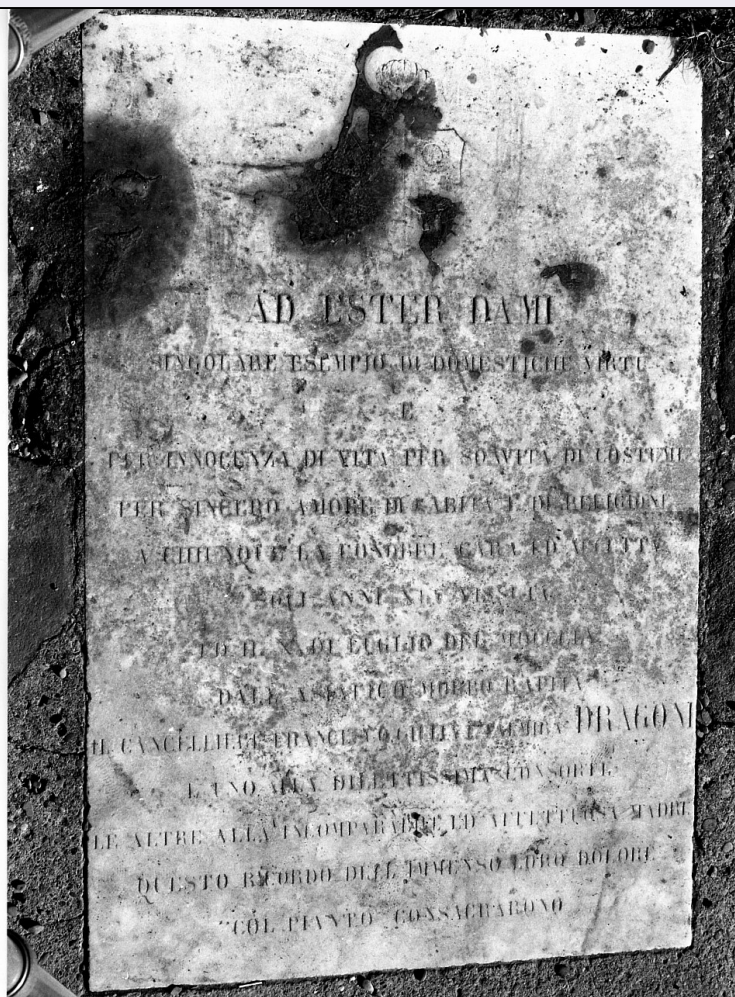 AD ESTER DAMI
SINGOLARE ESEMPIO DI DOMESTICHE VIRTU
E
PER INNOCENZA DI VITA PER SOAVITA DI COSTUMI
PER SINCERO AMORE DI CARITA E DI RELIGIONE
A CHIUNQUE LA CONOBBE CARA ED ACCETTA
GLI ANNI XLV VISSUTA
ED IL X DI LUGLIO DEL
DALL ASIATICO MORBO RAPITA
IL CANCELLIERE FRANCESCO GIULIA E DRAGONI
L UNO ALLA DILETTISSIMA CONSORTE
LE ALTRE ALLA INCOMPARABILE ED AFFETTUOSA MADRE
QUESTO RICORDO DELL IMMENSO LORO DOLORE
COL PIANTO CONSACRARONO